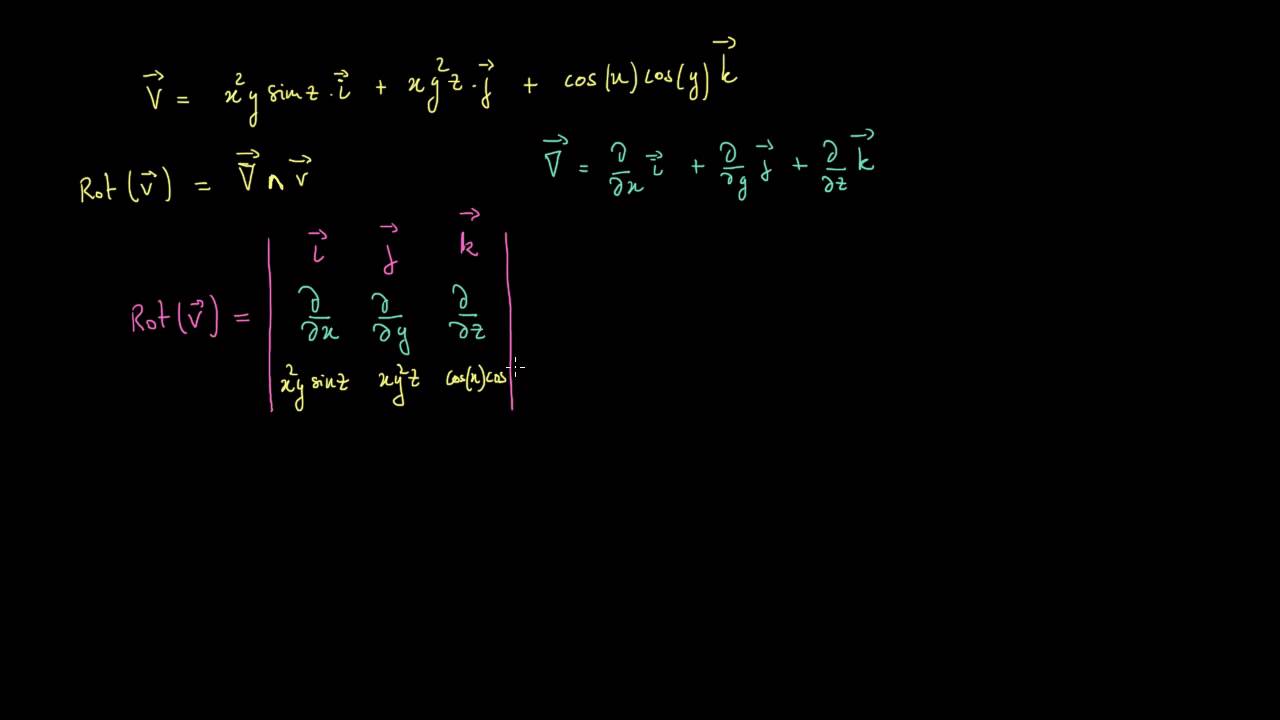 V⃗ = x²y sin z · i⃗ + xy²z · j⃗ + cos(x) cos(y) k⃗
Rot(v⃗) = ∇⃗ ∧ v⃗
∇⃗ = ∂/∂x i⃗ + ∂/∂y j⃗ + ∂/∂z k⃗
i⃗ j⃗ k⃗
Rot(v⃗) = | ∂/∂x ∂/∂y ∂/∂z |
x²y sin z xy²z cos(x) cos